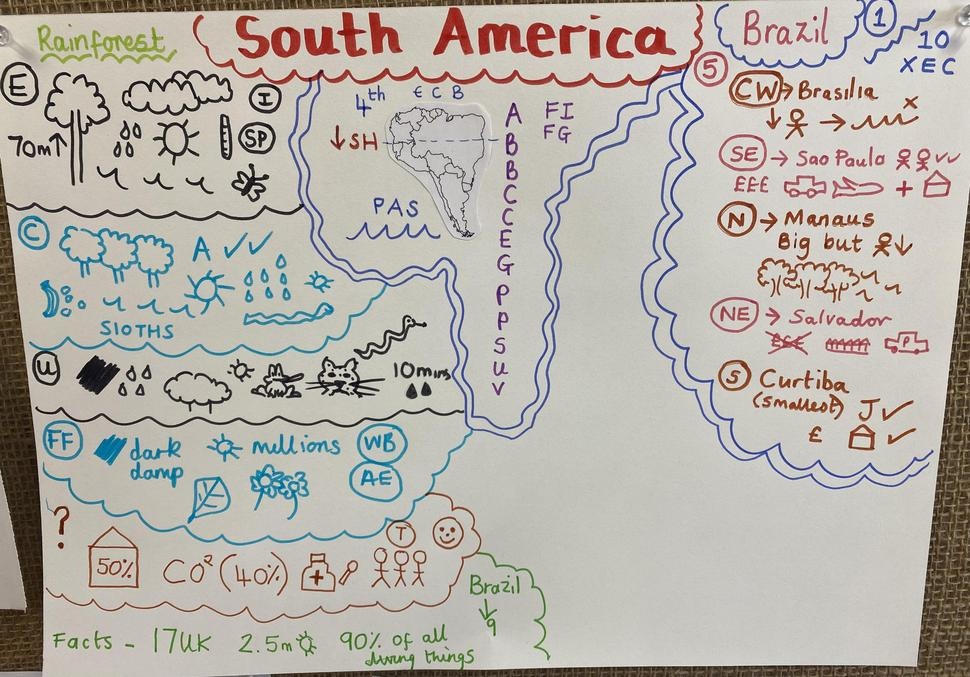 South America
Rainforest
E
I
70m↑
SP
C
A ✓✓
SlOTHS
U
10mins
FF
dark
damp
millions
WB
AE
?
50%
CO² (40%)
T
Facts - 17UK 2.5m 90% of all
living things
Brazil
↓
9
4th
€ C B
↓SH
PAS
A
B
B
C
C
E
G
P
P
S
U
V
FI
FG
Brazil
1
10
X E C
5
CW → Brasilia
↓ → x
SE → Sao Paulo ✓✓
£££ +
N → Manaus
Big but ↓
NE → Salvador
£££ P
S Curtiba
(smallest) J✓
£ ✓